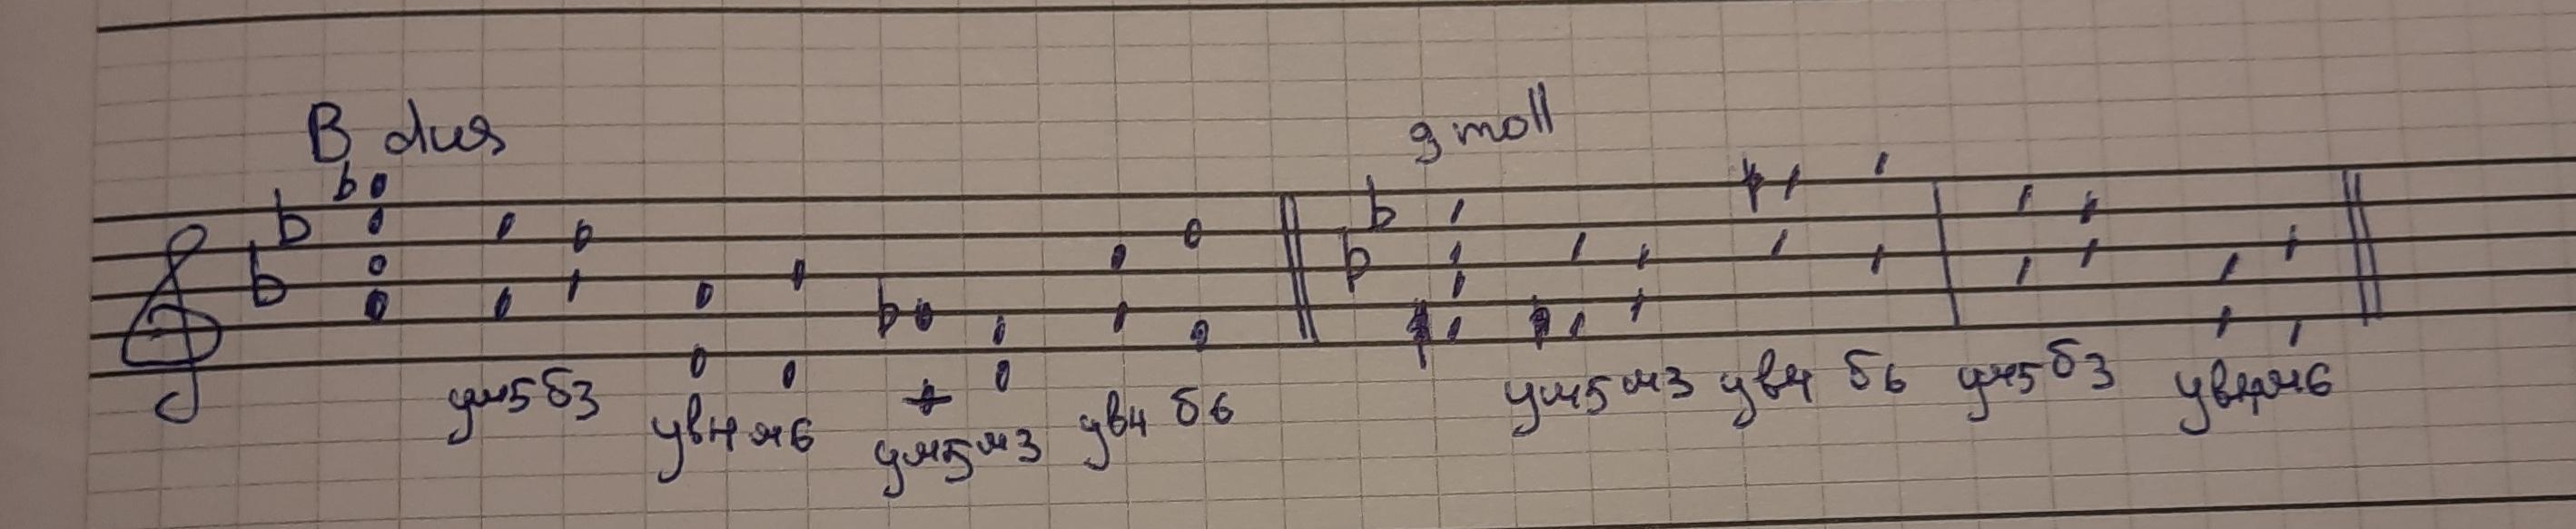 B dur
g moll
ум5 б3 ув4 м6 ум5 м3 ув4 б6 ум5 м3 ув4 б6 ум5 б3 ув4 м6